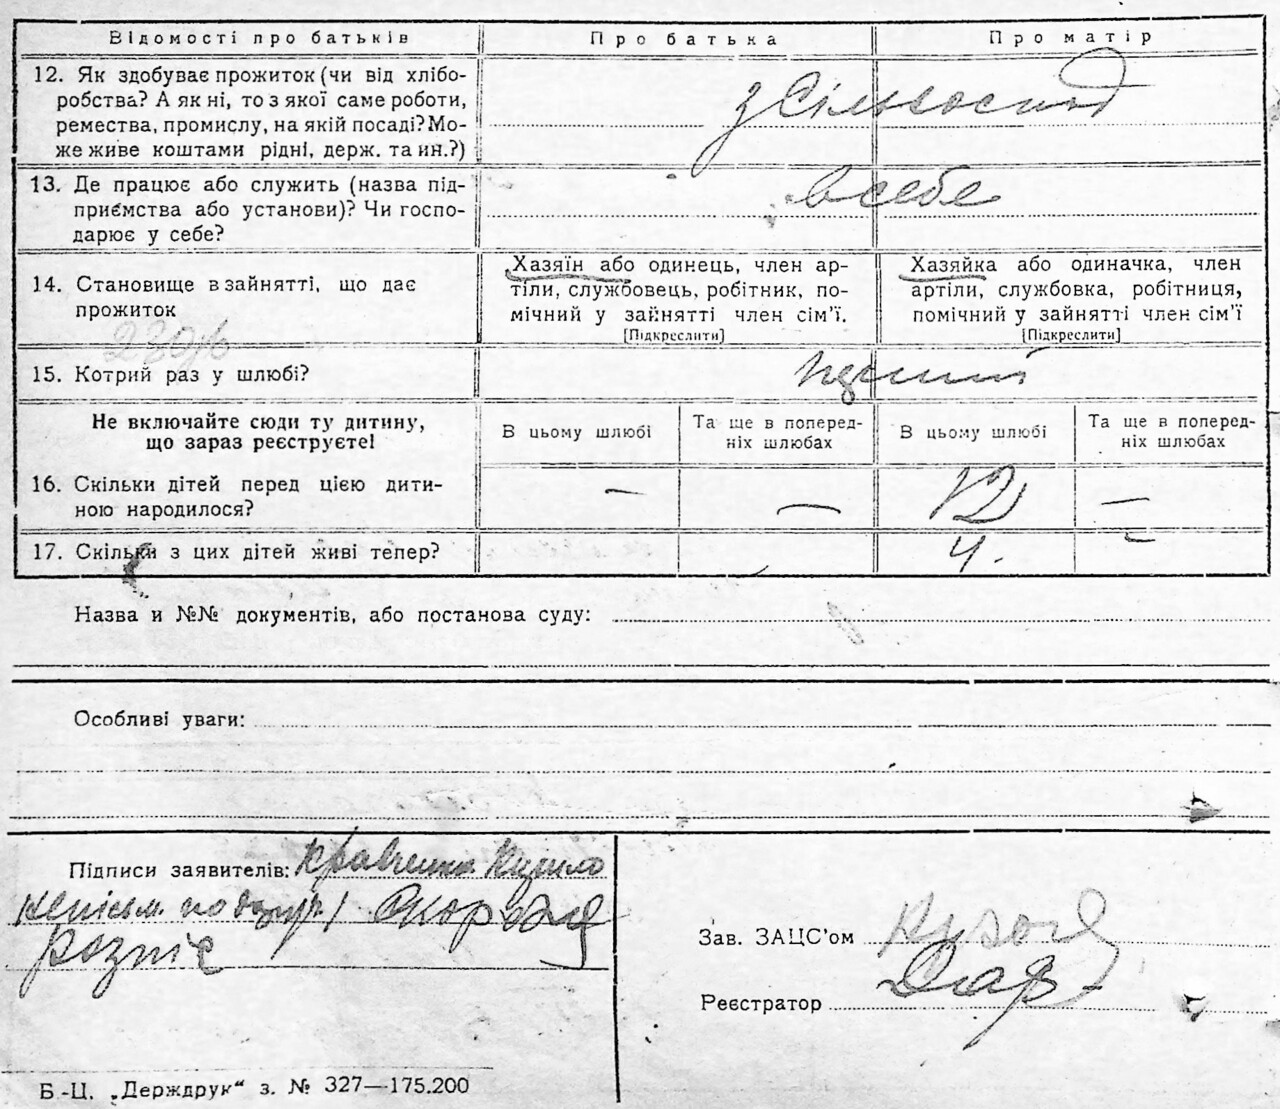 Відомості про батьків Про батька Про матір
12. Як здобуває прожиток (чи від хлібо-
робства? А як ні, то з якої саме роботи,
ремества, промислу, на якій посаді? Мо-
же живе коштами рідні, держ. та ин.?)
з Сільгоспод
13. Де працює або служить (назва під-
приємства або установи)? Чи госпо-
дарює у себе?
в себе
14. Становище в зайнятті, що дає
прожиток
Хазяїн або одинець, член ар-
тіли, службовець, робітник, по-
мічний у зайнятті член сім’ї.
[Підкреслити]
Хазяйка або одиначка, член
артіли, службовка, робітниця,
помічний у зайнятті член сім’ї
[Підкреслити]
15. Котрий раз у шлюбі?
Не включайте сюди ту дитину,
що зараз реєструєте!
В цьому шлюбі
Та ще в поперед-
ніх шлюбах
В цьому шлюбі
Та ще в поперед-
ніх шлюбах
16. Скільки дітей перед цією дити-
ною народилося?
— — 12 —
17. Скільки з цих дітей живі тепер?
4. —
Назва и №№ документів, або постанова суду:
Особливі уваги:
Підписи заявителів: Кравченко Кирило
розпис
Зав. ЗАЦС’ом
Реєстратор
Б.-Ц. „Держдрук“ з. № 327—175.200